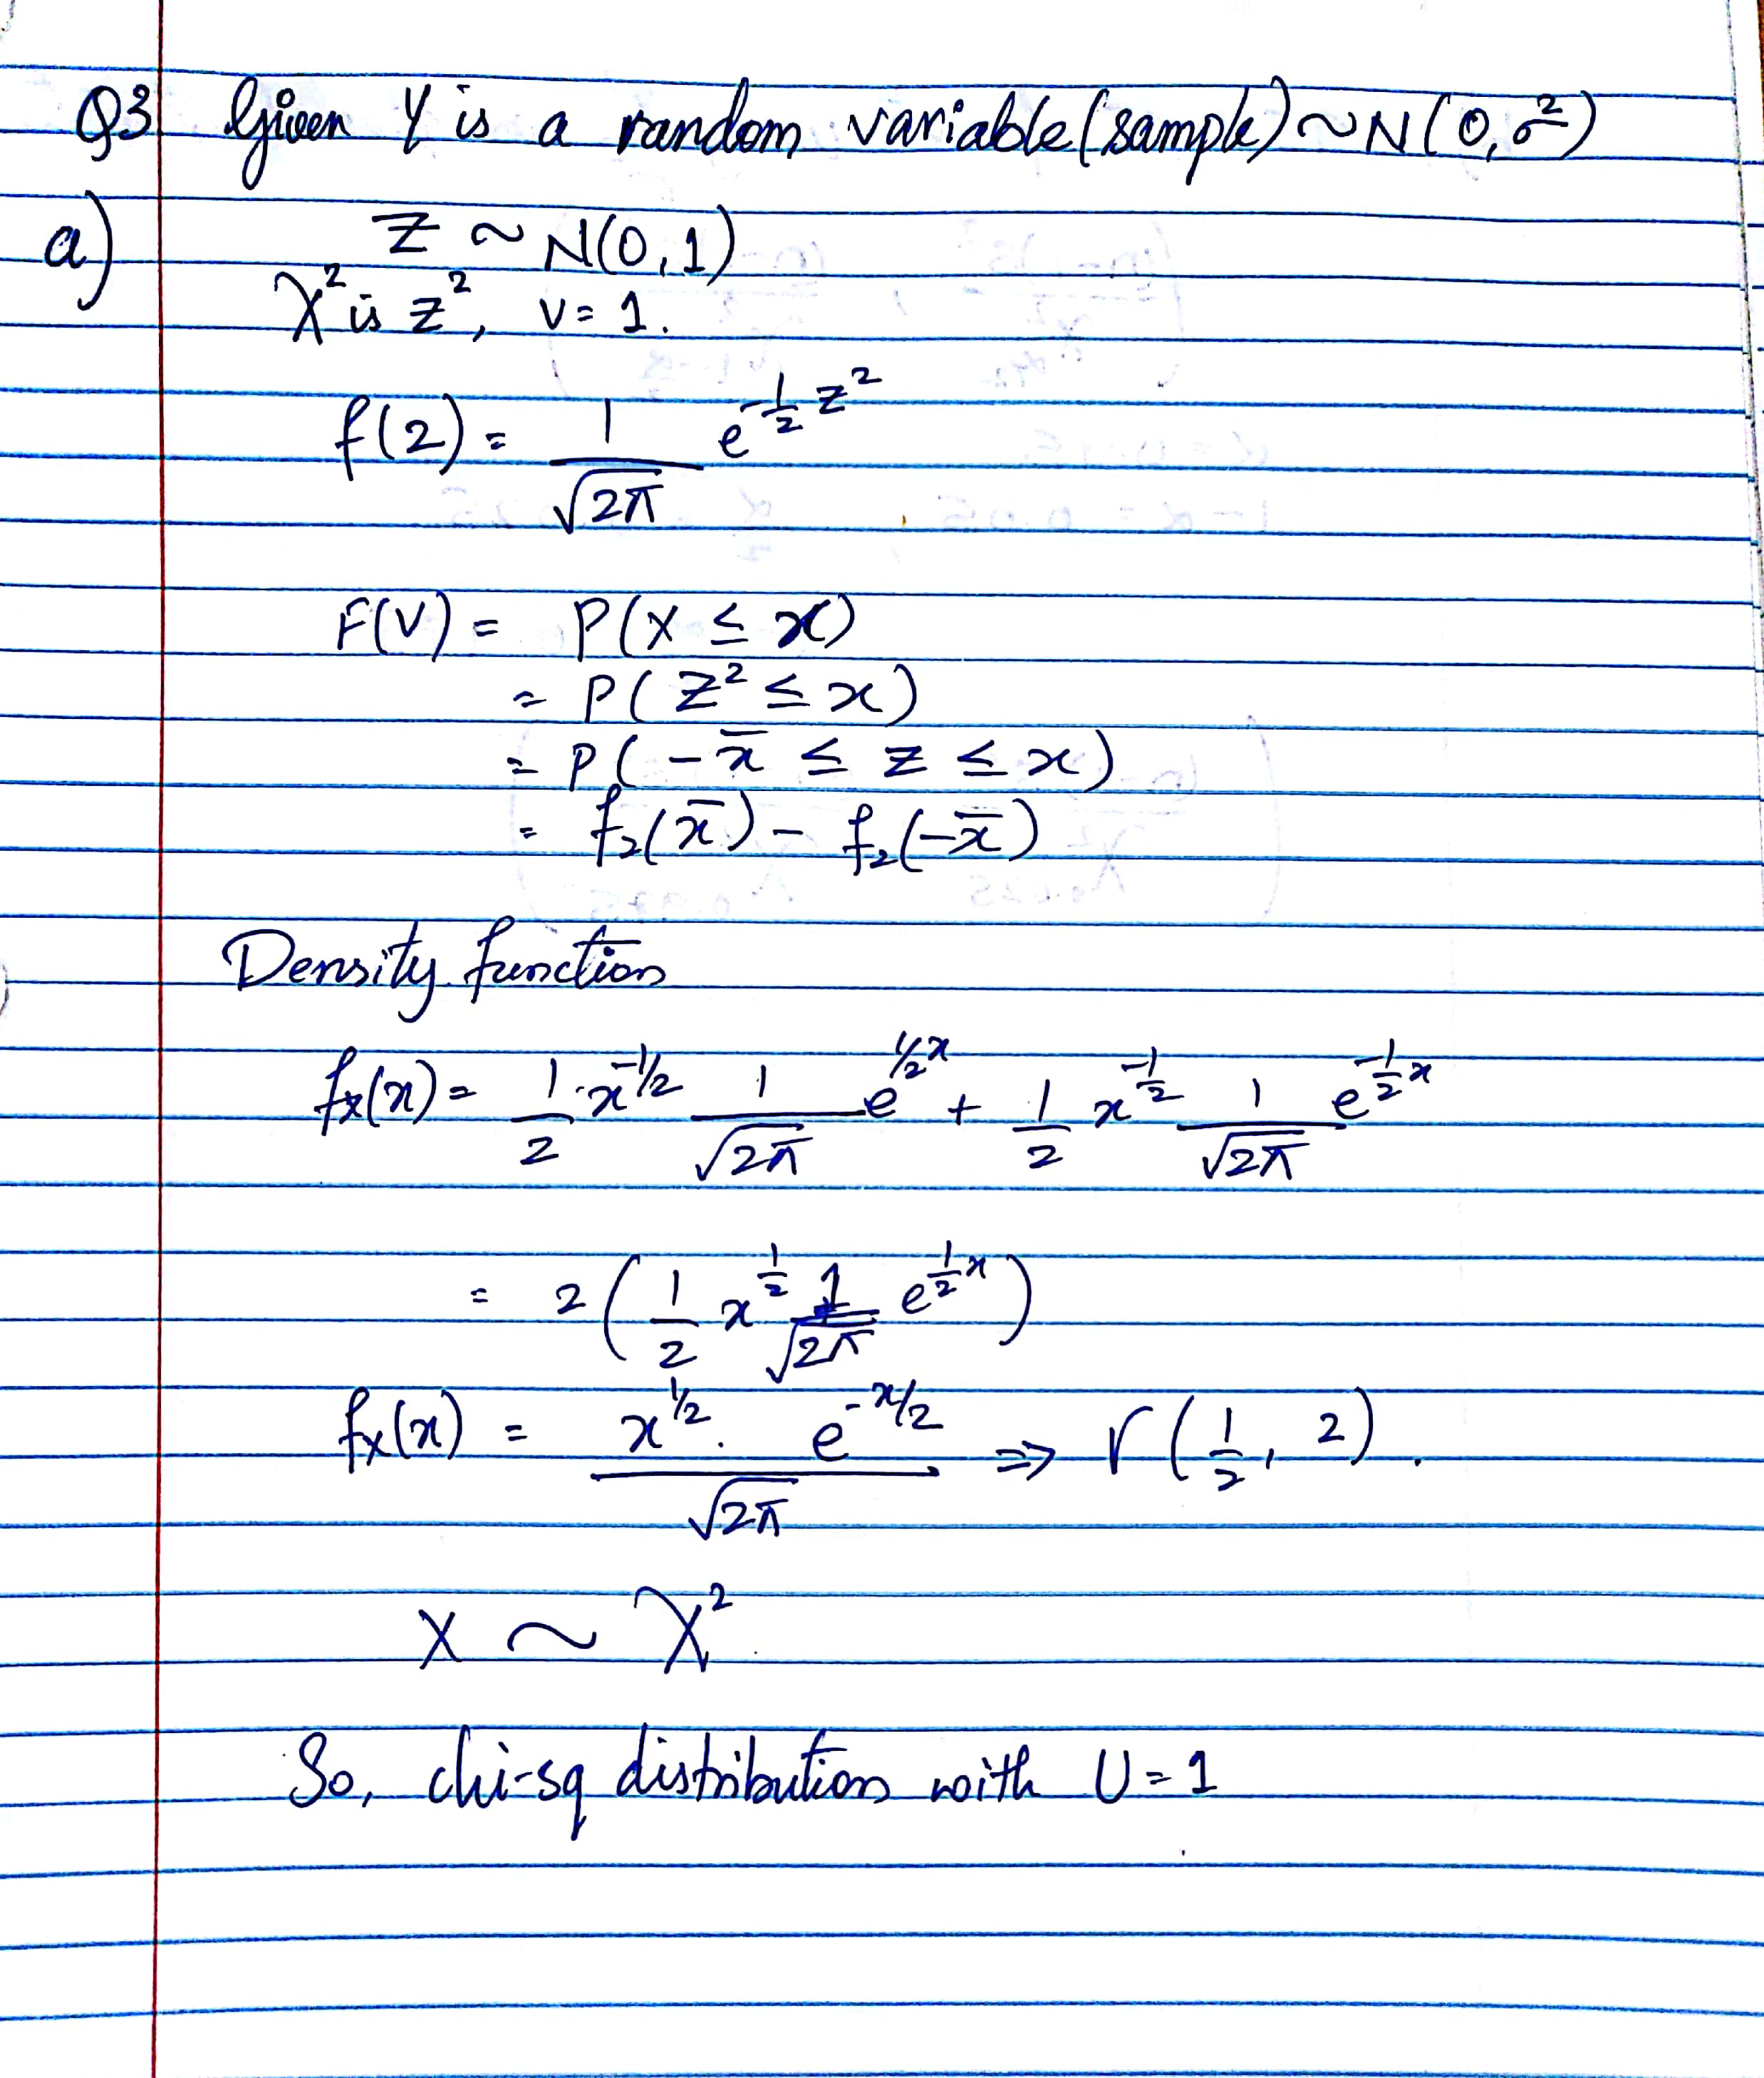 Q3 Given Y is a random variable (sample) ~ N(0, σ²)
a) Z ~ N(0, 1)
χ² is z², v = 1.
f(2) = 1/√2π e^(-1/2 z²)
F(V) = P(X ≤ x)
= P(Z² ≤ x)
= P(-x̄ ≤ z ≤ x)
= f₂(x̄) - f₂(-x̄)
Density function
fx(x) = 1/2 · x^(-1/2) 1/√2π e^(1/2 x) + 1/2 x^(-1/2) 1/√2π e^(-1/2 x)
= 2(1/2 x^(1/2) 1/√2π e^(1/2 x))
fx(x) = x^(1/2) . e^(-x/2) / √2π ⇒ Γ(1/2, 2).
X ~ χ²
So, chi-sq distribution with U = 1